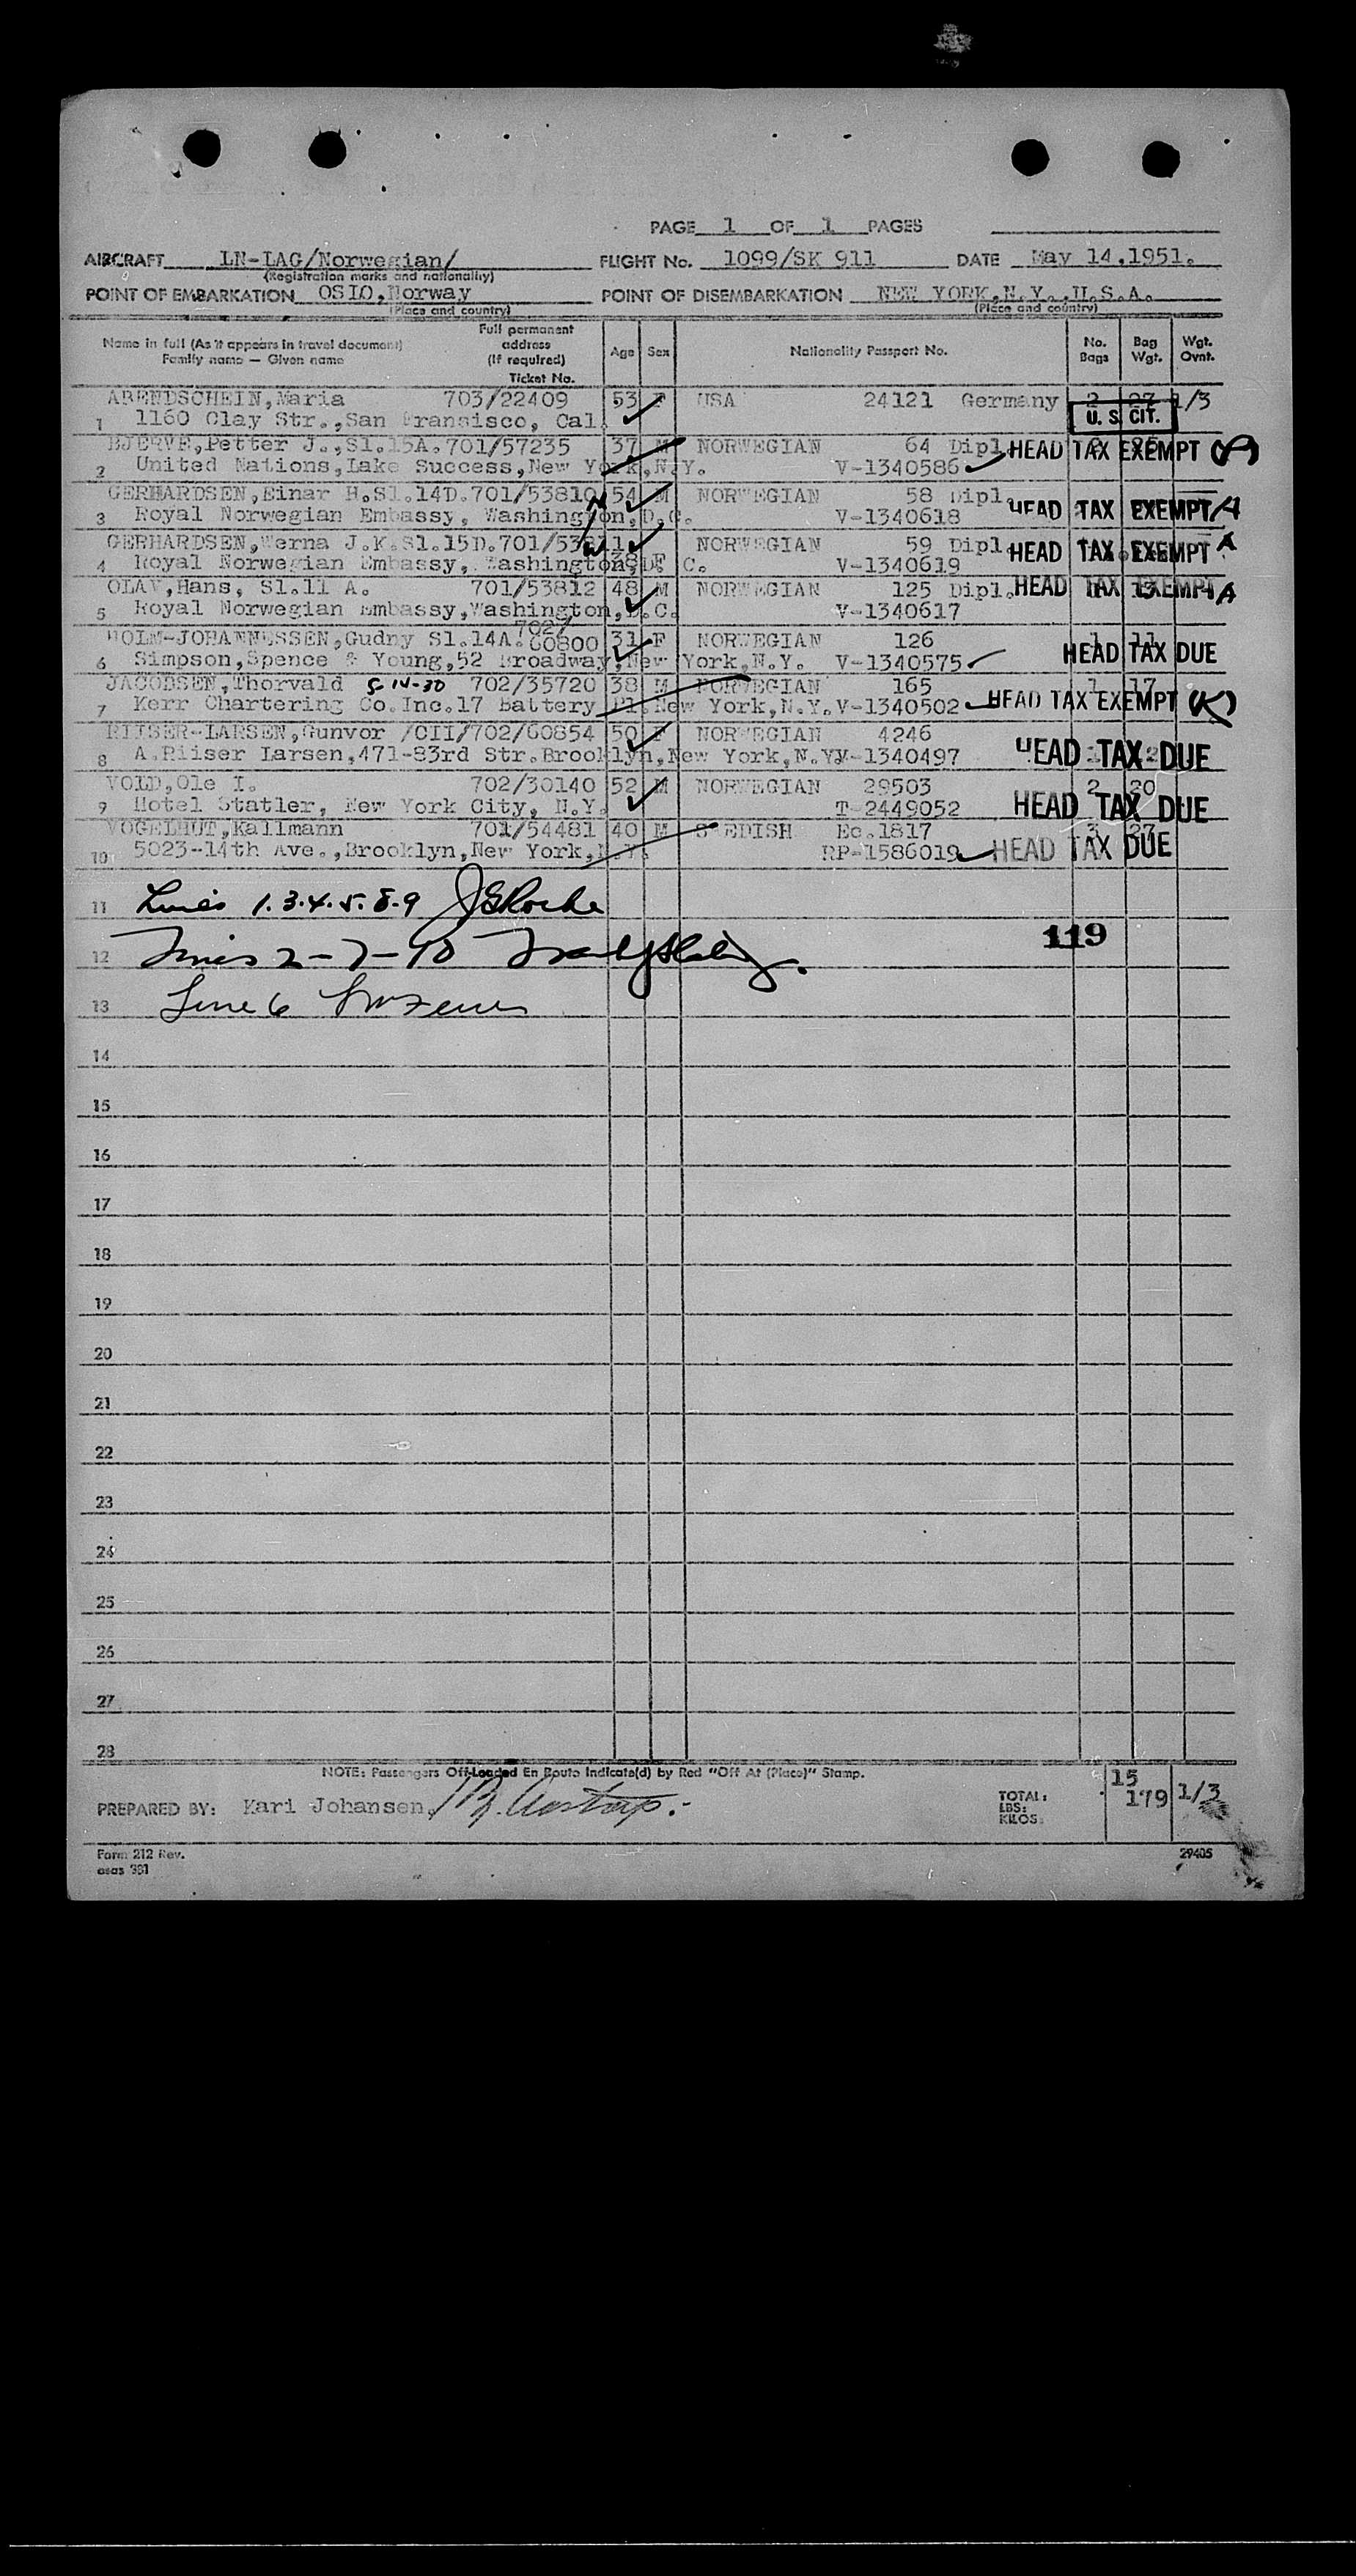 PAGE 1 OF 1 PAGES
AIRCRAFT LN-LAG/Norwegian/ FLIGHT No. 1099/SK 911 DATE May 14,1951.
(Registration marks and nationality)
POINT OF EMBARKATION OSLO,Norway POINT OF DISEMBARKATION NEW YORK,N.Y.,U.S.A.
(Place and country) (Place and country)
Name in full (As it appears in travel document) Family name — Given name Full permanent address (If required) Ticket No. Age Sex Nationality Passport No. No. Bags Bag Wgt. Wgt. Ovnt.
ABENDSCHEIN,Maria 703/22409 53 F USA 24121 Germany 2 27 1/3
1 1160 Clay Str.,San Fransisco, Cal. U. S. CIT.
BJERVE,Petter J.,Sl.15A.701/57235 37 M NORWEGIAN 64 Dipl. HEAD TAX EXEMPT
2 United Nations,Lake Success,New York,N.Y. V-1340586
GERHARDSEN,Einar H.Sl.14D.701/53810 54 M NORWEGIAN 58 Dipl. HEAD TAX EXEMPT A
3 Royal Norwegian Embassy, Washington,D.C. V-1340618
GERHARDSEN,Werna J.K.Sl.15D.701/53811 NORWEGIAN 59 Dipl. HEAD TAX EXEMPT A
4 Royal Norwegian Embassy, Washington,D. C. 38 F V-1340619
OLAV,Hans, Sl.11 A. 701/53812 48 M NORWEGIAN 125 Dipl. HEAD TAX EXEMPT A
5 Royal Norwegian Embassy,Washington,D.C. V-1340617
HOLM-JOHANNESSEN,Gudny Sl.14A. 702/60800 31 F NORWEGIAN 126 1 11
6 Simpson,Spence & Young,52 Broadway,New York,N.Y. V-1340575 HEAD TAX DUE
JACOBSEN,Thorvald 5-14-30 702/35720 38 M NORWEGIAN 165 1 17
7 Kerr Chartering Co.Inc.17 Battery Pl.New York,N.Y. V-1340502 HEAD TAX EXEMPT (K)
RIISER-LARSEN,Gunvor /CII/702/60854 50 F NORWEGIAN 4246
8 A.Riiser Larsen,471-83rd Str.Brooklyn,New York,N.Y. V-1340497 HEAD TAX DUE
VOLD,Ole I. 702/30140 52 M NORWEGIAN 29503 2 20
9 Hotel Statler, New York City, N.Y. T-2449052 HEAD TAX DUE
VOGELHUT,Kallmann 701/54481 40 M SWEDISH Ec.1817 3 27
10 5023-14th Ave.,Brooklyn,New York,N.Y. RP-1586019 HEAD TAX DUE
11 Lines 1.3.4.5.8.9 JERoche
12 Lines 2-7-10 119
13 Line 6
14
15
16
17
18
19
20
21
22
23
24
25
26
27
28
NOTE: Passengers Off-Loaded En Route Indicate(d) by Red "Off At (Place)" Stamp.
PREPARED BY: Kari Johansen, TOTAL: LBS: KILOS: 15 179 1/3
Form 212 Rev. 29405
asas 381